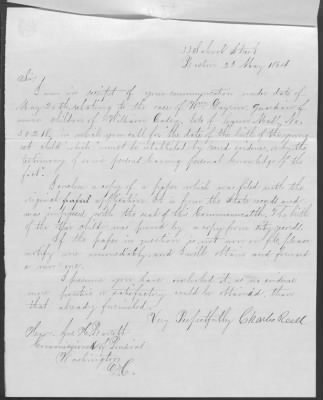 33 School Street
Boston 28 May 1864
Sir
I am in receipt of your communication under date of
May 26th relating to the case of Wm Gaynor, Guardian of
minor children of William Caley, late of
in which you call for "the date of the birth of the young
est child which must be established by record evidence, or by the
testimony of some person having personal knowledge of the
fact".
I enclose a copy of a paper which was filed with the
original application. It is from the State records and
was impressed with the seal of this Commonwealth. The birth
of the other child was proved by a copy from city records.
If the paper in question is not now on file, please
notify me immediately and I will obtain and forward
a new one.
I presume you have overlooked it, as no evidence
more positive or satisfactory could be obtained, than
that already furnished.
Very Respectfully Charles Reed
Hon. Jos. H. Barrett
Commissioner of Pensions
Washington
D.C.